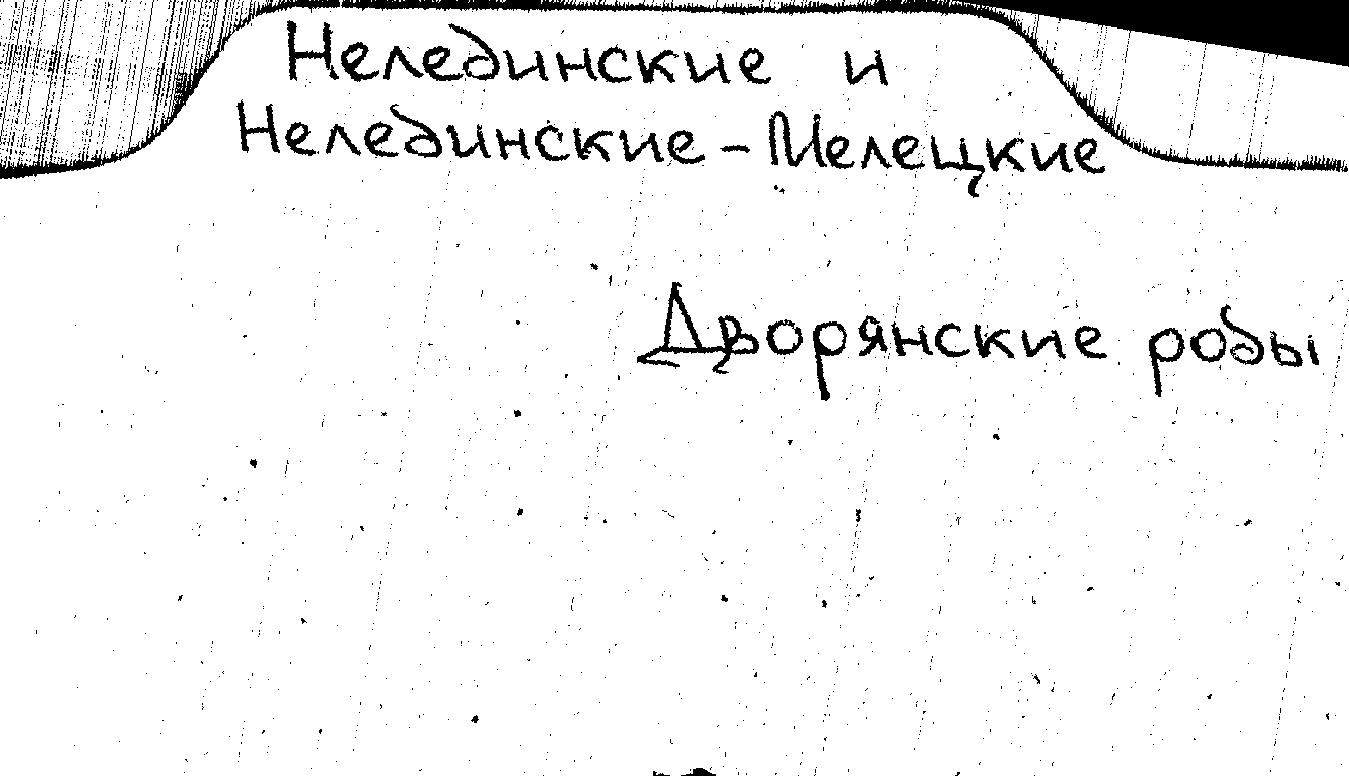 Нелединские и
Нелединские-Мелецкие
Дворянские роды